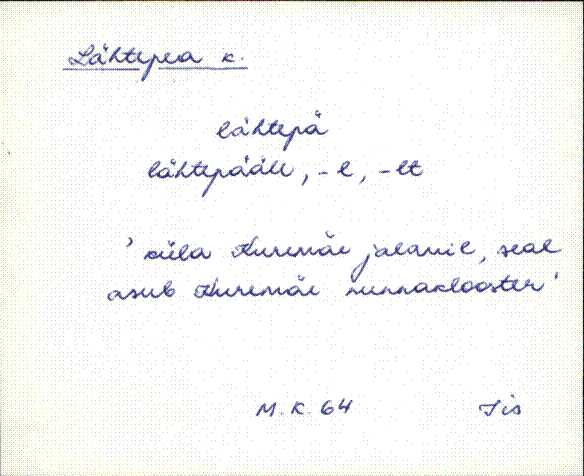 Lähtepea k.
lähtepä
lähtepääll, -l, -lt
' küla Kuremäe jalamil, seal
asub Kuremäe nunnaklooster '
M. K. 64 Iis